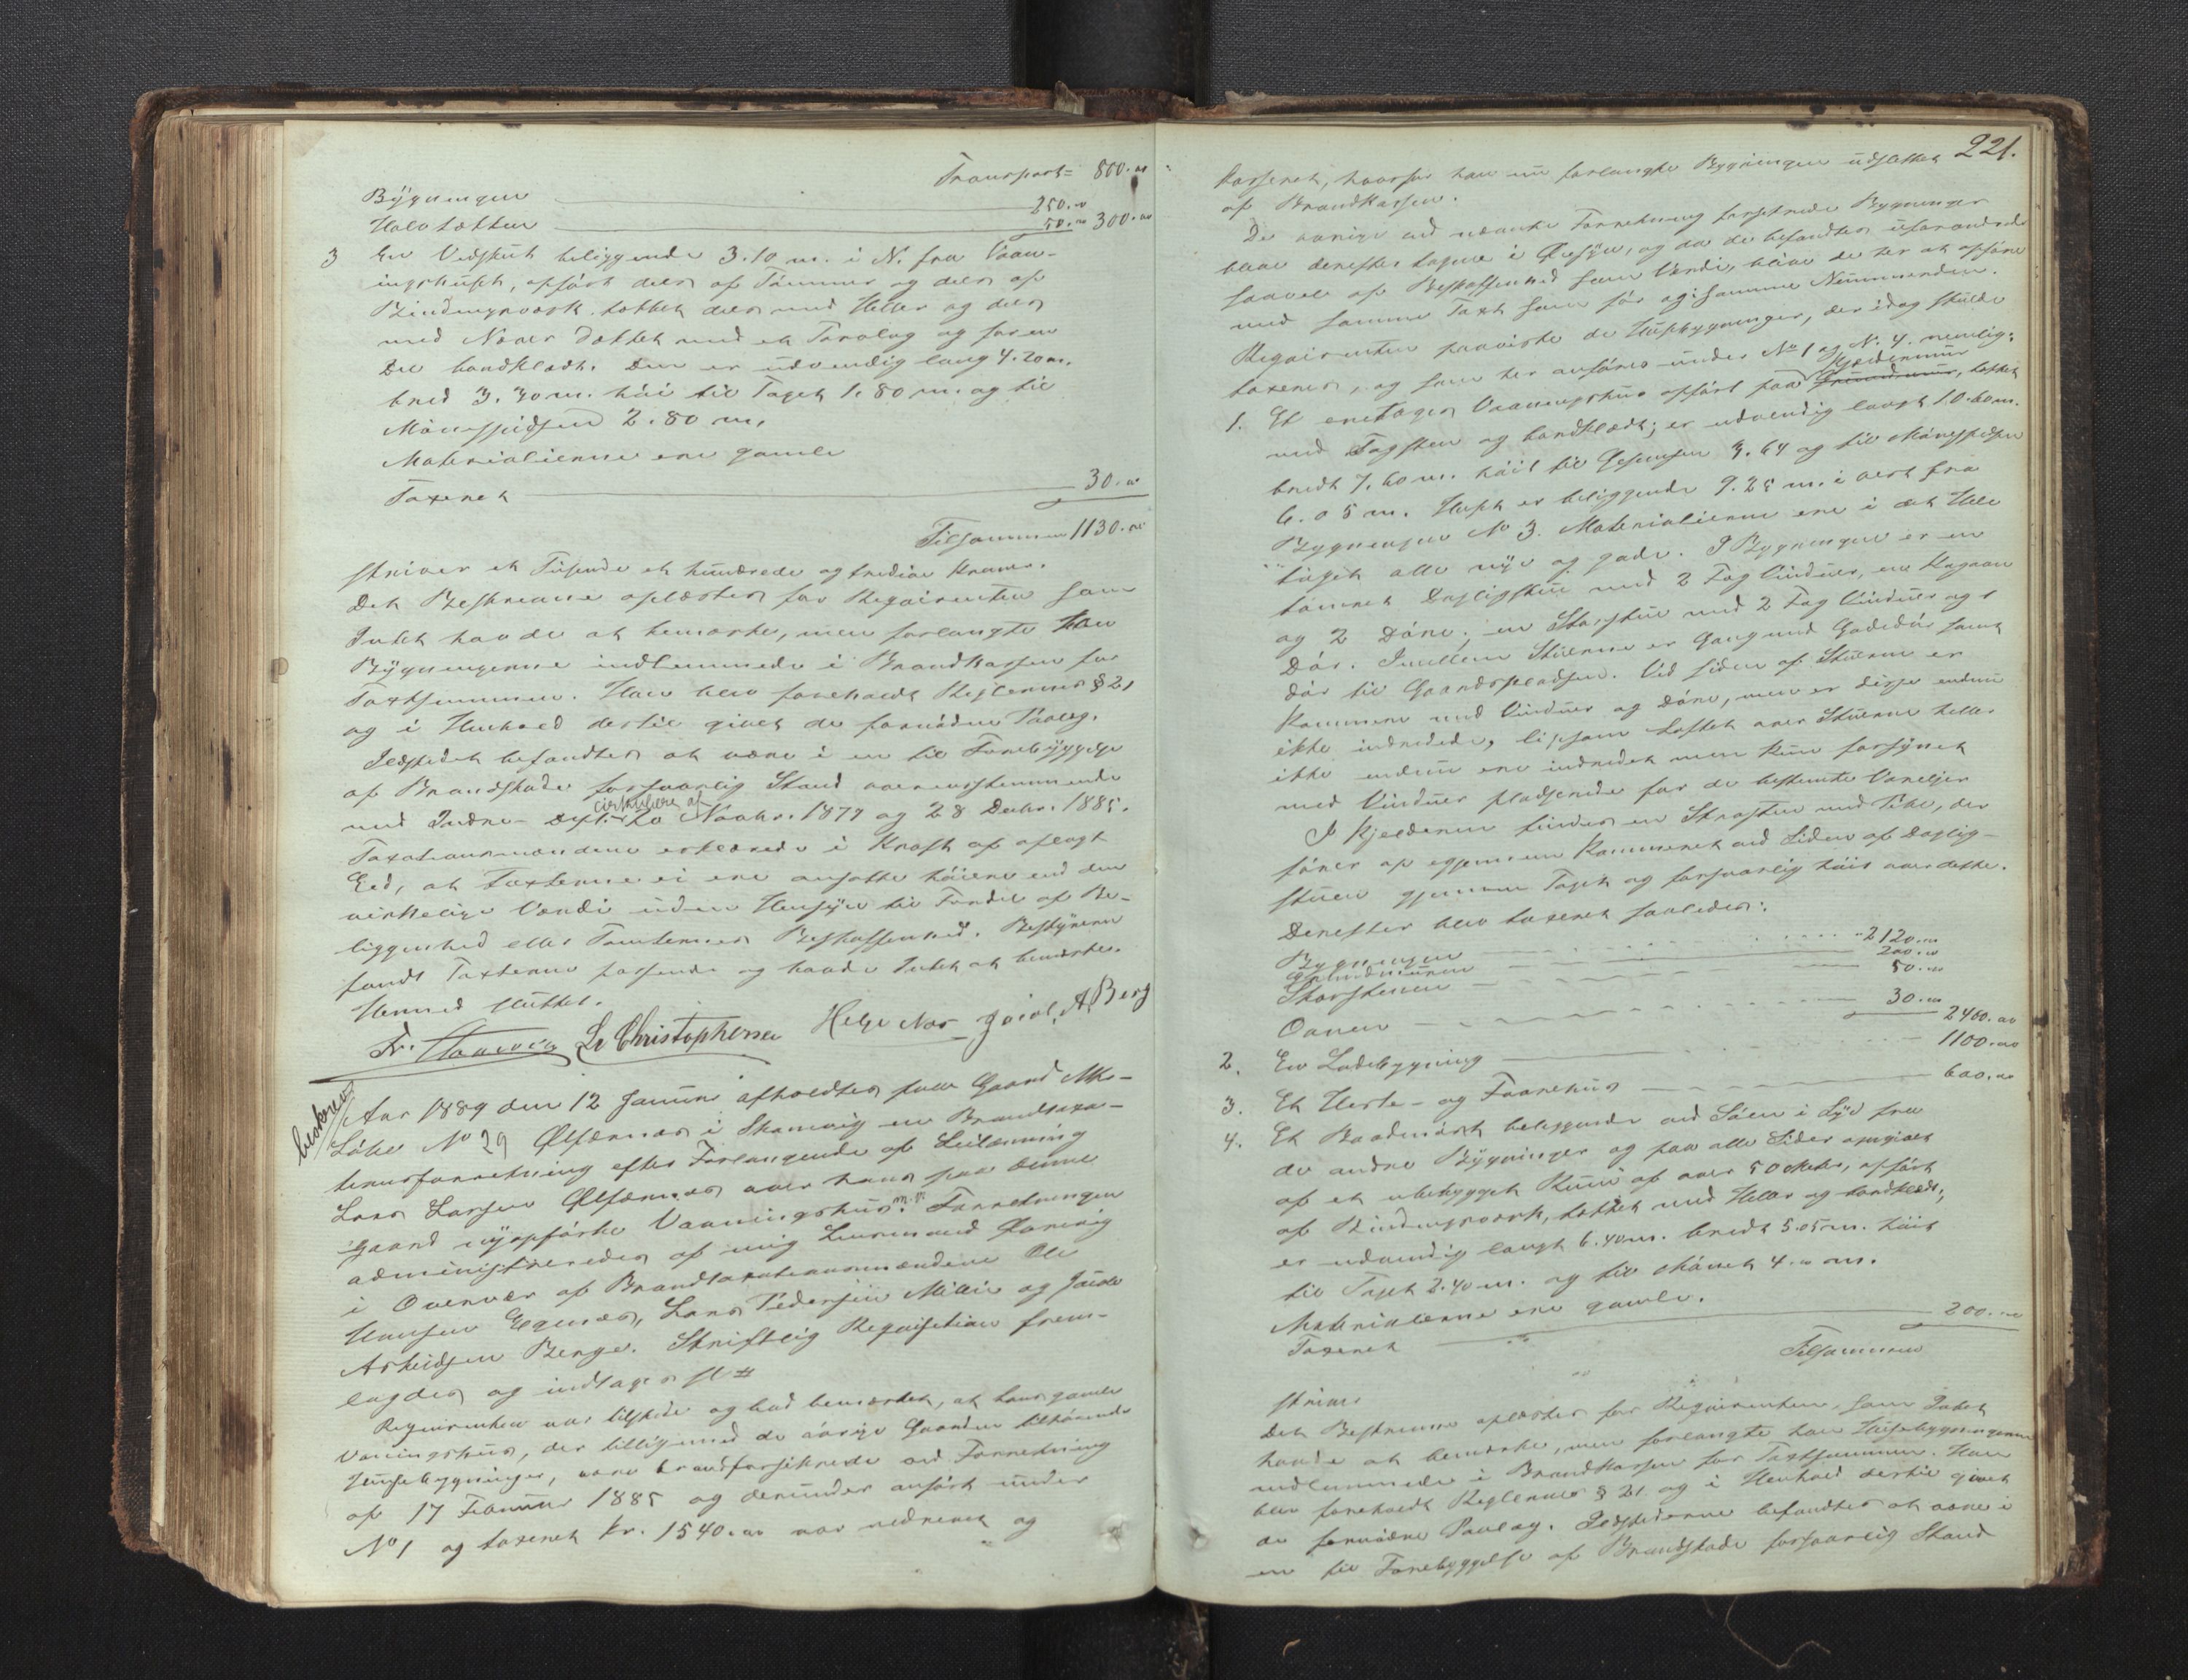 Transport= 800.00
Bygningen 250.00
Halvtækten 50.00 300.00
3 En Vedskut beliggende 3.10 m. i N. fra Vaan-
ingshuset, opført dels af Tømmer og dels af
Bindingsværk tækket dels med Heller og dels
med Næver dækket med et Torvlag og for en
Del bordklædt. Den er udvendig lang 4.20 m.
bred 3.30 m. høi til Taget 1.80 m. og til
Mønespidsen 2.80 m.
Materialierne ere gamle
Taxeret 30.00
Tilsammen 1130.00
skriver et Tusende et hundrede og tredive Kroner.
Det Beskrevne oplæstes for Reqvirenten som
Intet havde at bemærke, men forlangte
Bygningerne indlemmede i Brandkassen for
Taxtsummen. Han blev foreholdt Reglernes § 21
og i Henhold dertil givet de fornødne Paalæg.
Ildstedet befandtes at være i en til Forebyggelse
af Brandskade forsvarlig Stand overensstemmende
cirkulære af
med Indre-Dept. 20 Novbr. 1877 og 28 Decbr. 1885.
Taxationsmændene erklærede i Kraft af aflagt
Eed, at Taxterne ei ere ansatte høiere end den
virkelige Værdi uden Hensyn til Fordel af Be-
liggenhed eller Tomternes Beskaffenhed. Bestyreren
fandt Taxterne passende og havde Intet at bemærke.
Hermed sluttet.
L Christophersen Helge Nos Joial. A. Berg
beskrevet
Aar 1889 den 12 Januar afholdtes paa Gaard Mtr-
Løbe No 29 Ølfærnæs i Skanevig en Brandtaxa-
tionsforretning efter Forlangende af Leilænding
Lars Larsen Ølfærnæs over hans paa denne
Gaard nyopførte Vaaningshus m.v. Forretningen
administreredes af mig Lensmand
i Overvær af Brandtaxationsmændene Ole
Hansen Egenæs, Lars Pedersen Milie og Joial
Askildsen Berge. Skriftlig Reqvisition frem-
lagdes og indtages sl #
Reqvirenten var tilstede og lod bemærket, at hans gamle
Vaaningshus, der tilligemed de øvrige Gaarden tilhørende
Husebygninger, vare brandforsikrede ved Forretning
af 17 Februar 1885 og derunder anført under
No 1 og taxeret Kr. 1540.00 var nedrevet og
221.
kasseret, hvorfor han nu forlangte Bygningen udslettet
af Brandkassen.
De øvrige ved nævnte Forretning forsikrede Bygninger
bleve derefter tagne i Øiesyn, og da de befandtes uforandrede
saavel af Beskaffenhed som Værdi, blive de her at opføre
med samme Taxt som før og samme Nummerorden.
Reqvirenten paaviste de Husebygninger, der idag skulde
taxeres, og som her anføres under No 1 og No. 4. nemlig:
Kjeldermur
1. Et enetages Vaaningshus opført paa Grundmur, tækket
med Tagsten og bordklædt; er udvendig langt 10.60 m.
bredt 7.60 m. høit til Gesimsen 3.64 og til Mønespidsen
6.05 m. Huset er beliggende 9.25 m. i vest fra
Bygningen No 3. Materialierne ere i det Hele
taget alle nye og gode. I Bygningen er en
tømret Dagligstue med 2 Fag Vinduer, en Kogeovn
og 2 Døre; en Storstue med 2 Fag Vinduer og 1
Dør. Imellem Stuerne er Gang med Gadedør samt
dør til Gaardspladsen. Ved Siden af Stuerne er
Kammere med Vinduer og Døre, men er disse endnu
ikke indredede, ligesom Loftet over Stuerne heller
ikke endnu ere indredet men kun forsynet
med Vinduer pladserede for de bestemte Værelser
I Kjelderen findes en Skorsten med Pibe, der
fører op gjennem Kammeret ved Siden af Daglig-
stuen gjennem Taget og forsvarlig høit over dette.
Derefter blev taxeret saaledes:
Bygningen 2120.00
Grundmuren 200.00
Skorstenen 50.00
Ovnen 30.00 2400.00
2. En Ladebygning 1100.00
3. Et Heste- og Faarehus 600.00
4. Et Baadnøst beliggende ved Søen i Syd fra
de andre Bygninger og paa alle Sider omgivet
af et ubebygget Rum af over 50 Meter, opført
af Bindingsværk, tækket med Heller og bordklædt;
er udvendig langt 6.40 m. bredt 5.05 m. høit
til Taget 2.40 m. og til Mønet 4.00 m.
Materialerne ere gamle.
Taxeret 200.00
Tilsammen
skriver
Det Beskrevne oplæstes for Reqvirenten, som Intet
havde at bemærke, men forlangte han Husebygningerne
indlemmede i Brandkassen for Taxtsummen. Han
blev foreholdt Reglernes § 21 og i Henhold dertil givet
de fornødne Paalæg. Ildstederne befandtes at være i
en til Forebyggelse af Brandskade forsvarlig Stand